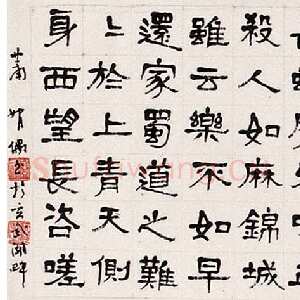 殺人如麻錦城
雖云樂不如早
還家蜀道之難
〻於上青天側
身西望長咨嗟
於玄武湖畔